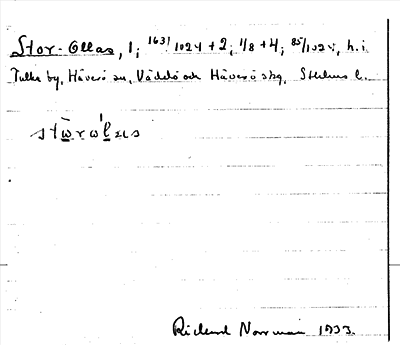 Stor-Ollas, 1; 1631/1024 + 2; 1/8 + 4; 85/1024, h. i
Tulka by, Häverö sn, Väddö och Häverö skg, Sthlms l.
Rickard Norrman 1933.